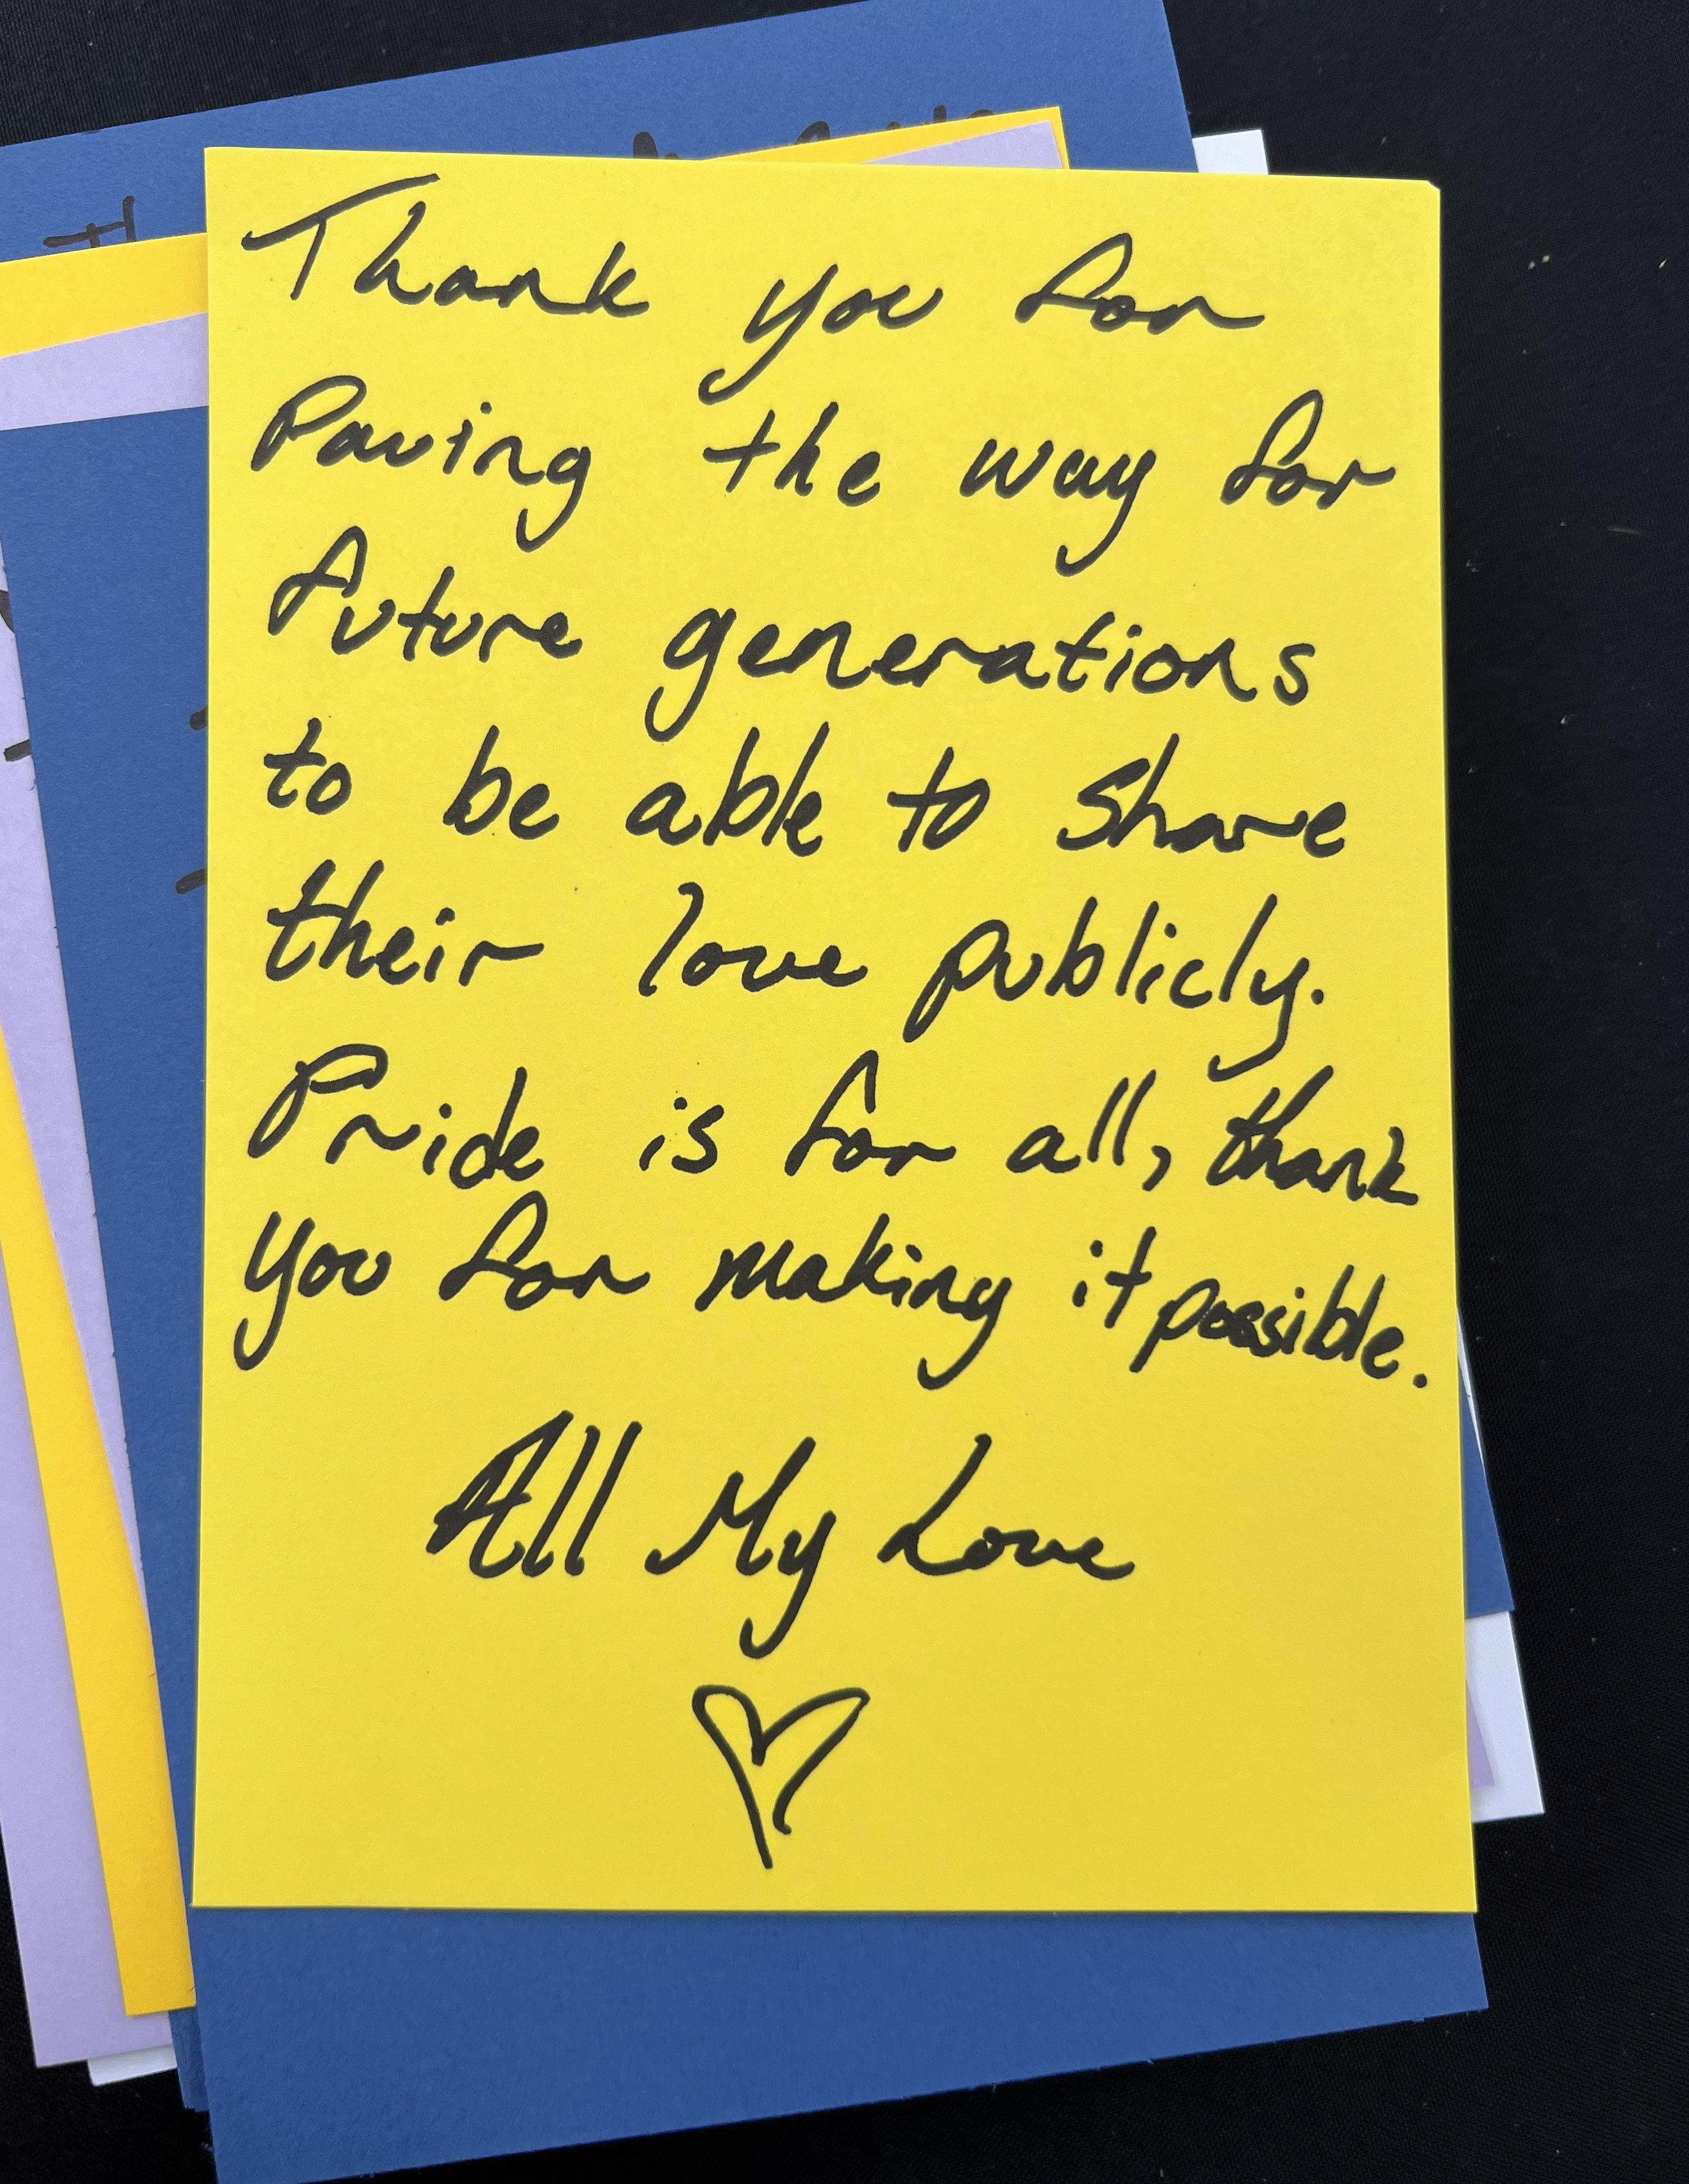 Thank you for
Paving the way for
future generations
to be able to share
their love publicly.
Pride is for all, thank
you for making it possible.
All My Love